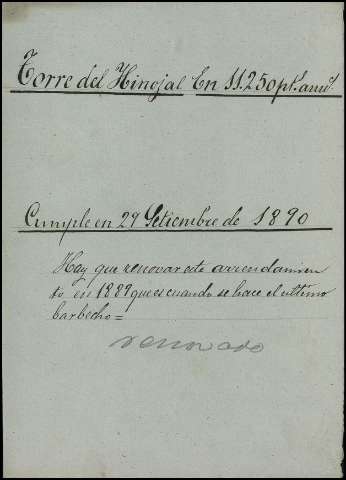 Torre del Hinojal En 11.250 pts. anus.
Cumple en 29 Setiembre de 1890
Hay que renovar este arrendamien
to en 1889 que es cuando se hace el último
barbecho =
renovado